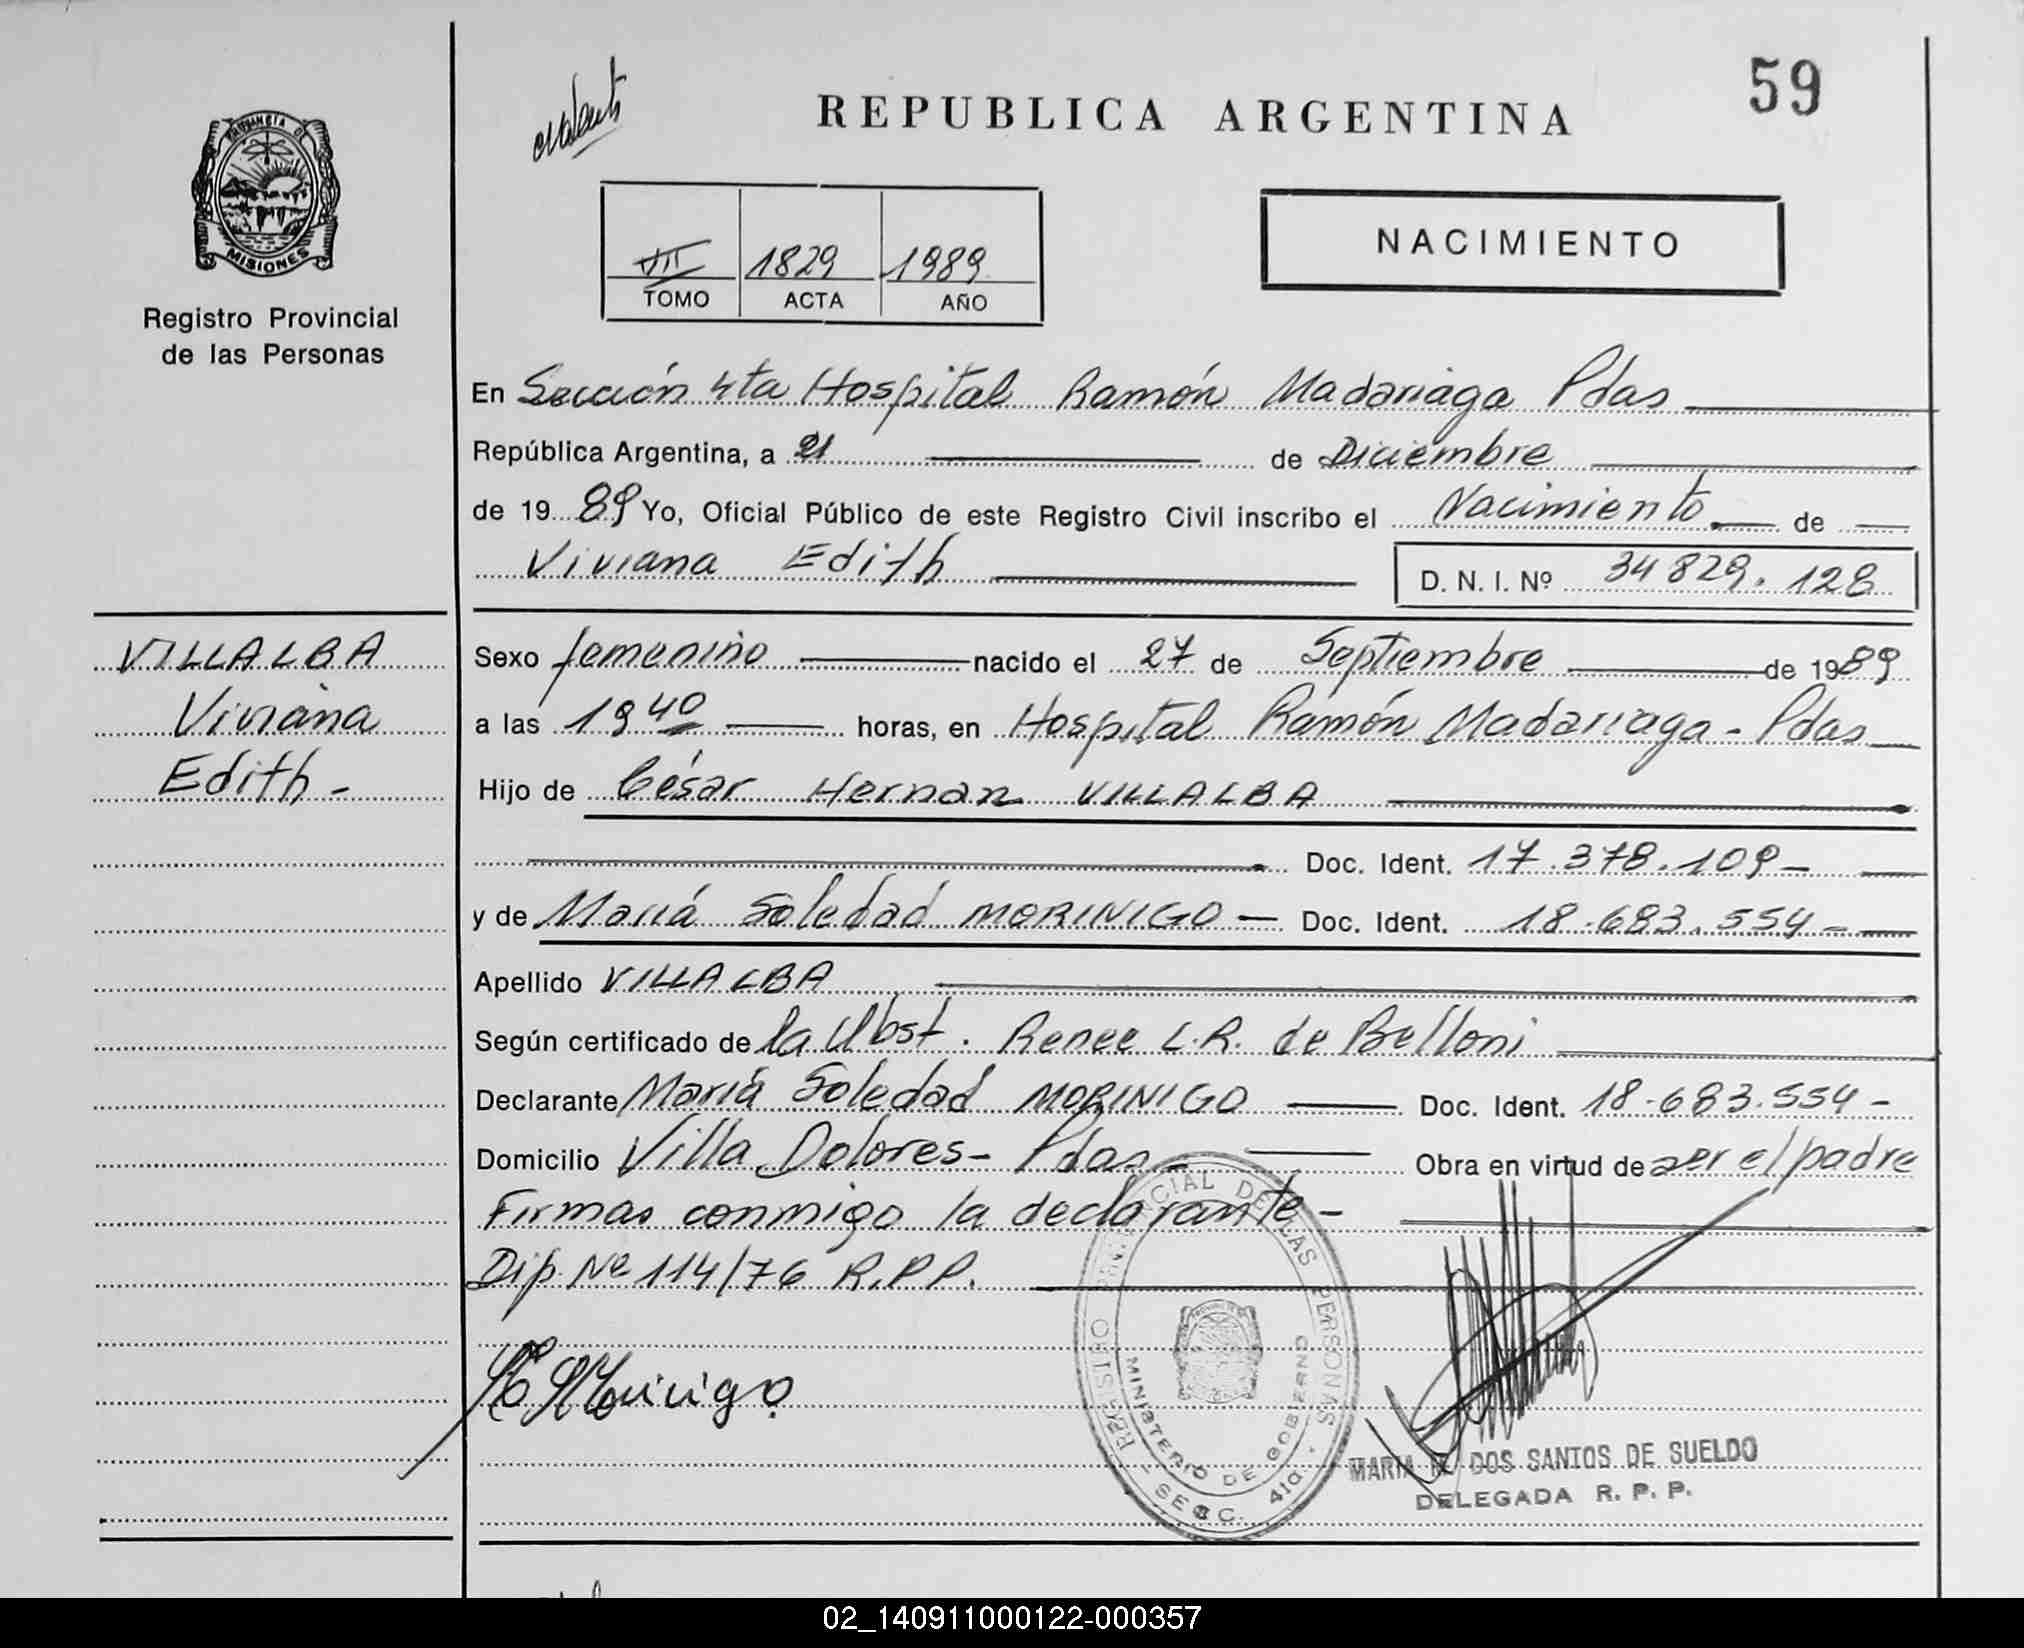 59
REPUBLICA ARGENTINA
PROVINCIA DE
MISIONES
Registro Provincial
de las Personas
NACIMIENTO
VII 1829 1989
TOMO ACTA AÑO
En Sección 4ta Hospital Ramón Madariaga Pdas
República Argentina, a 21 de Diciembre
de 1989 Yo, Oficial Público de este Registro Civil inscribo el Nacimiento de
Viviana Edith D. N. I. Nº 34 829. 128
VILLALBA
Viviana
Edith -
Sexo femenino nacido el 27 de Septiembre de 1989
a las 19 40 horas, en Hospital Ramón Madariaga - Pdas
Hijo de César Hernan VILLALBA
Doc. Ident. 17.378.109 -
y de María Soledad MORINIGO - Doc. Ident. 18.683.554 -
Apellido VILLALBA
Según certificado de la Obst. Renee L.R. de Belloni
Declarante María Soledad MORINIGO Doc. Ident. 18.683.554 -
Domicilio Villa Dolores - Pdas - Obra en virtud de ser el padre
Firmas conmigo la declarante -
Dip. Nº 114/76 R.P.P.
Morinigo
REGISTRO PROVINCIAL DE LAS PERSONAS
MINISTERIO DE GOBIERNO
SECC. 4ta.
MARIA DOS SANTOS DE SUELDO
DELEGADA R. P. P.
02_140911000122-000357